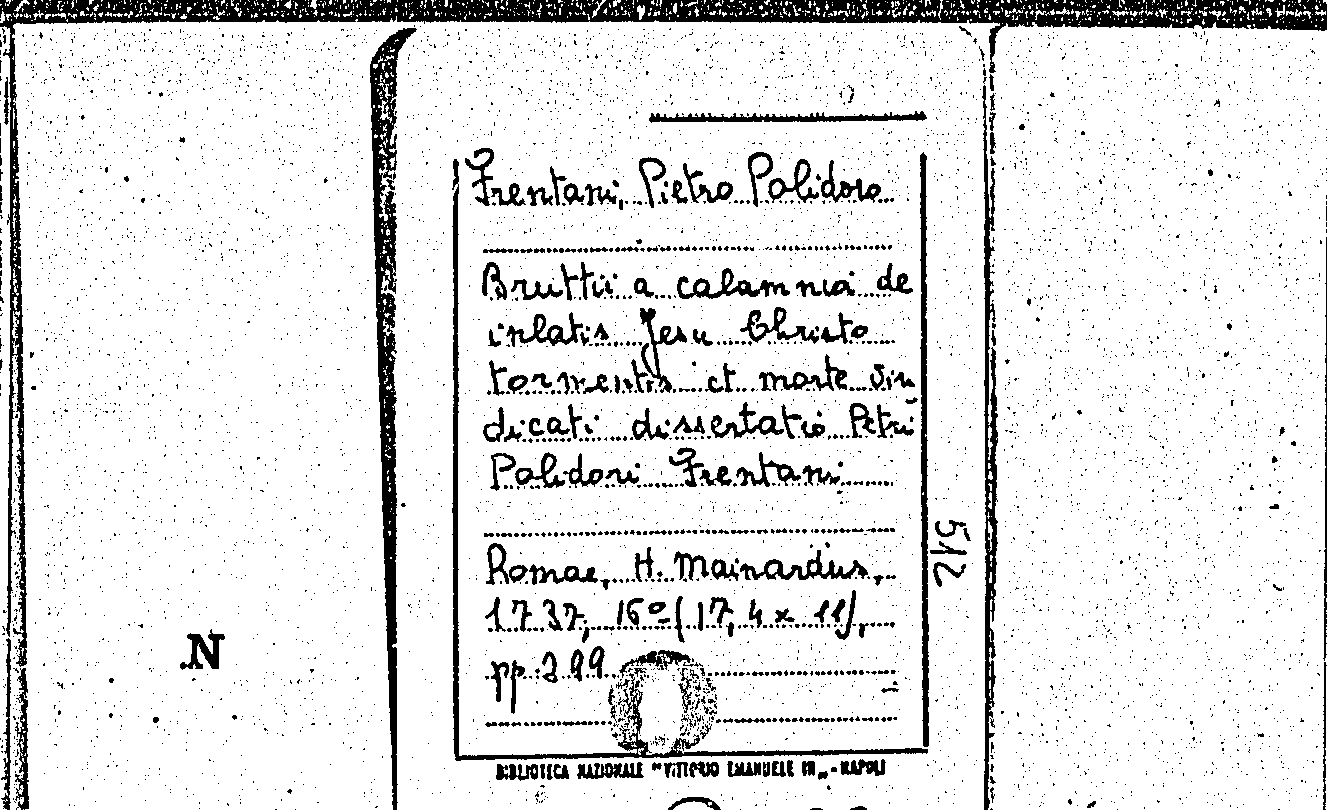 Frentani, Pietro Polidoro
Bruttii a calamnia de
inlatis Jesu Christo
tormentis et morte vin
dicati dissertatio Petri
Polidori Frentani
Romae, H. Mainardus,
1737, 16º (17,4 x 11),
pp. 399
512
.N
BIBLIOTECA NAZIONALE "VITTORIO EMANUELE III" - NAPOLI